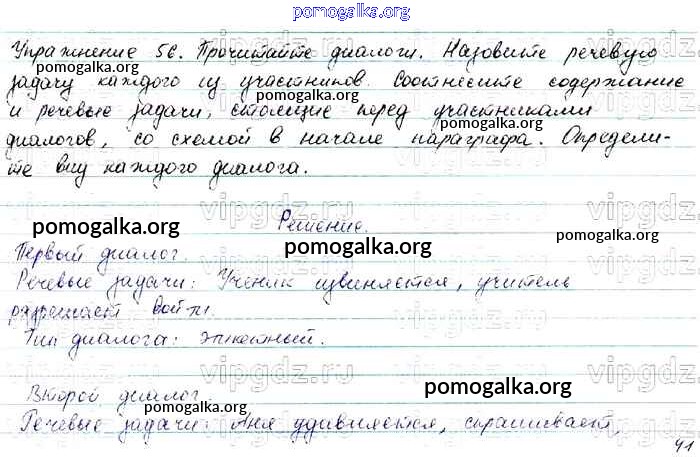 pomogalka.org
Упражнение 56. Прочитайте диалоги. Назовите речевую
задачу каждого из участников. Соотнесите содержание
и речевые задачи, стоящие перед участниками
диалогов, со схемой в начале параграфа. Определи-
те вид каждого диалога.
Решение.
Первый диалог.
Речевые задачи: Ученик извиняется, учитель
разрешает войти.
Тип диалога: этикетный.
Второй диалог.
Речевые задачи: Аня удивляется, спрашивает,
41
pomogalka.org
pomogalka.org
pomogalka.org
pomogalka.org
pomogalka.org
pomogalka.org
pomogalka.org
pomogalka.org
pomogalka.org
pomogalka.org
vipgdz.ru
vipgdz.ru
vipgdz.ru